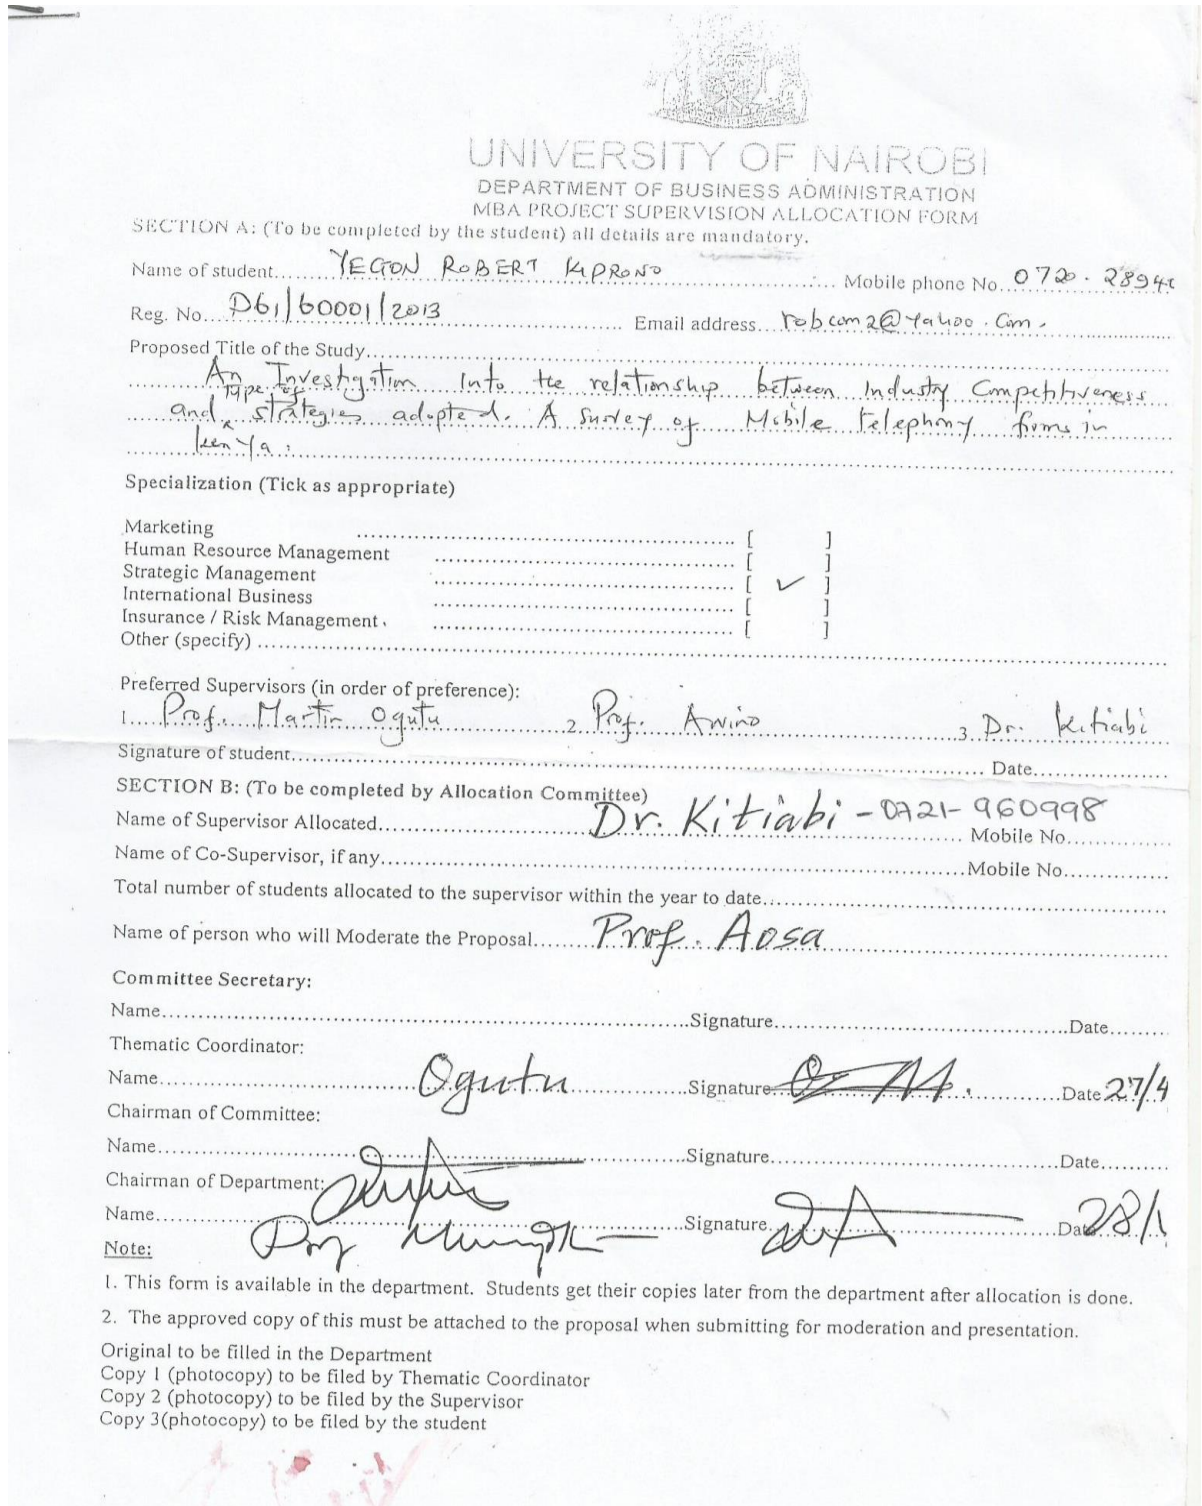 UNIVERSITY OF NAIROBI
DEPARTMENT OF BUSINESS ADMINISTRATION
MBA PROJECT SUPERVISION ALLOCATION FORM
SECTION A: (To be completed by the student) all details are mandatory.
Name of student....... YEGON ROBERT KIPRONO .......... Mobile phone No. 0720-2894
Reg. No.... D61/60001/2013 .......... Email address.... robcom2@yahoo.com.
Proposed Title of the Study..........
An Investigation Into the relationship between Industry Competitiveness
Type of
and strategies adopted. A survey of Mobile telephony firms in
Kenya.
Specialization (Tick as appropriate)
Marketing .......... [ ]
Human Resource Management .......... [ ]
Strategic Management .......... [ ✓ ]
International Business .......... [ ]
Insurance / Risk Management .......... [ ]
Other (specify) ..........
Preferred Supervisors (in order of preference):
1.... Prof. Martin Ogutu .......... 2. Prof. Awino .......... 3. Dr. Kitiabi
Signature of student.......... Date..........
SECTION B: (To be completed by Allocation Committee)
Name of Supervisor Allocated.......... Dr. Kitiabi - 0721-960998 Mobile No..........
Name of Co-Supervisor, if any.......... Mobile No..........
Total number of students allocated to the supervisor within the year to date..........
Name of person who will Moderate the Proposal.......... Prof. Aosa
Committee Secretary:
Name.......... Signature.......... Date..........
Thematic Coordinator:
Name.......... Ogutu .......... Signature.......... Date 27/4
Chairman of Committee:
Name.......... Signature.......... Date..........
Chairman of Department:
Name.......... Prof .......... Signature.......... Date 28/
Note:
1. This form is available in the department. Students get their copies later from the department after allocation is done.
2. The approved copy of this must be attached to the proposal when submitting for moderation and presentation.
Original to be filled in the Department
Copy 1 (photocopy) to be filed by Thematic Coordinator
Copy 2 (photocopy) to be filed by the Supervisor
Copy 3(photocopy) to be filed by the student